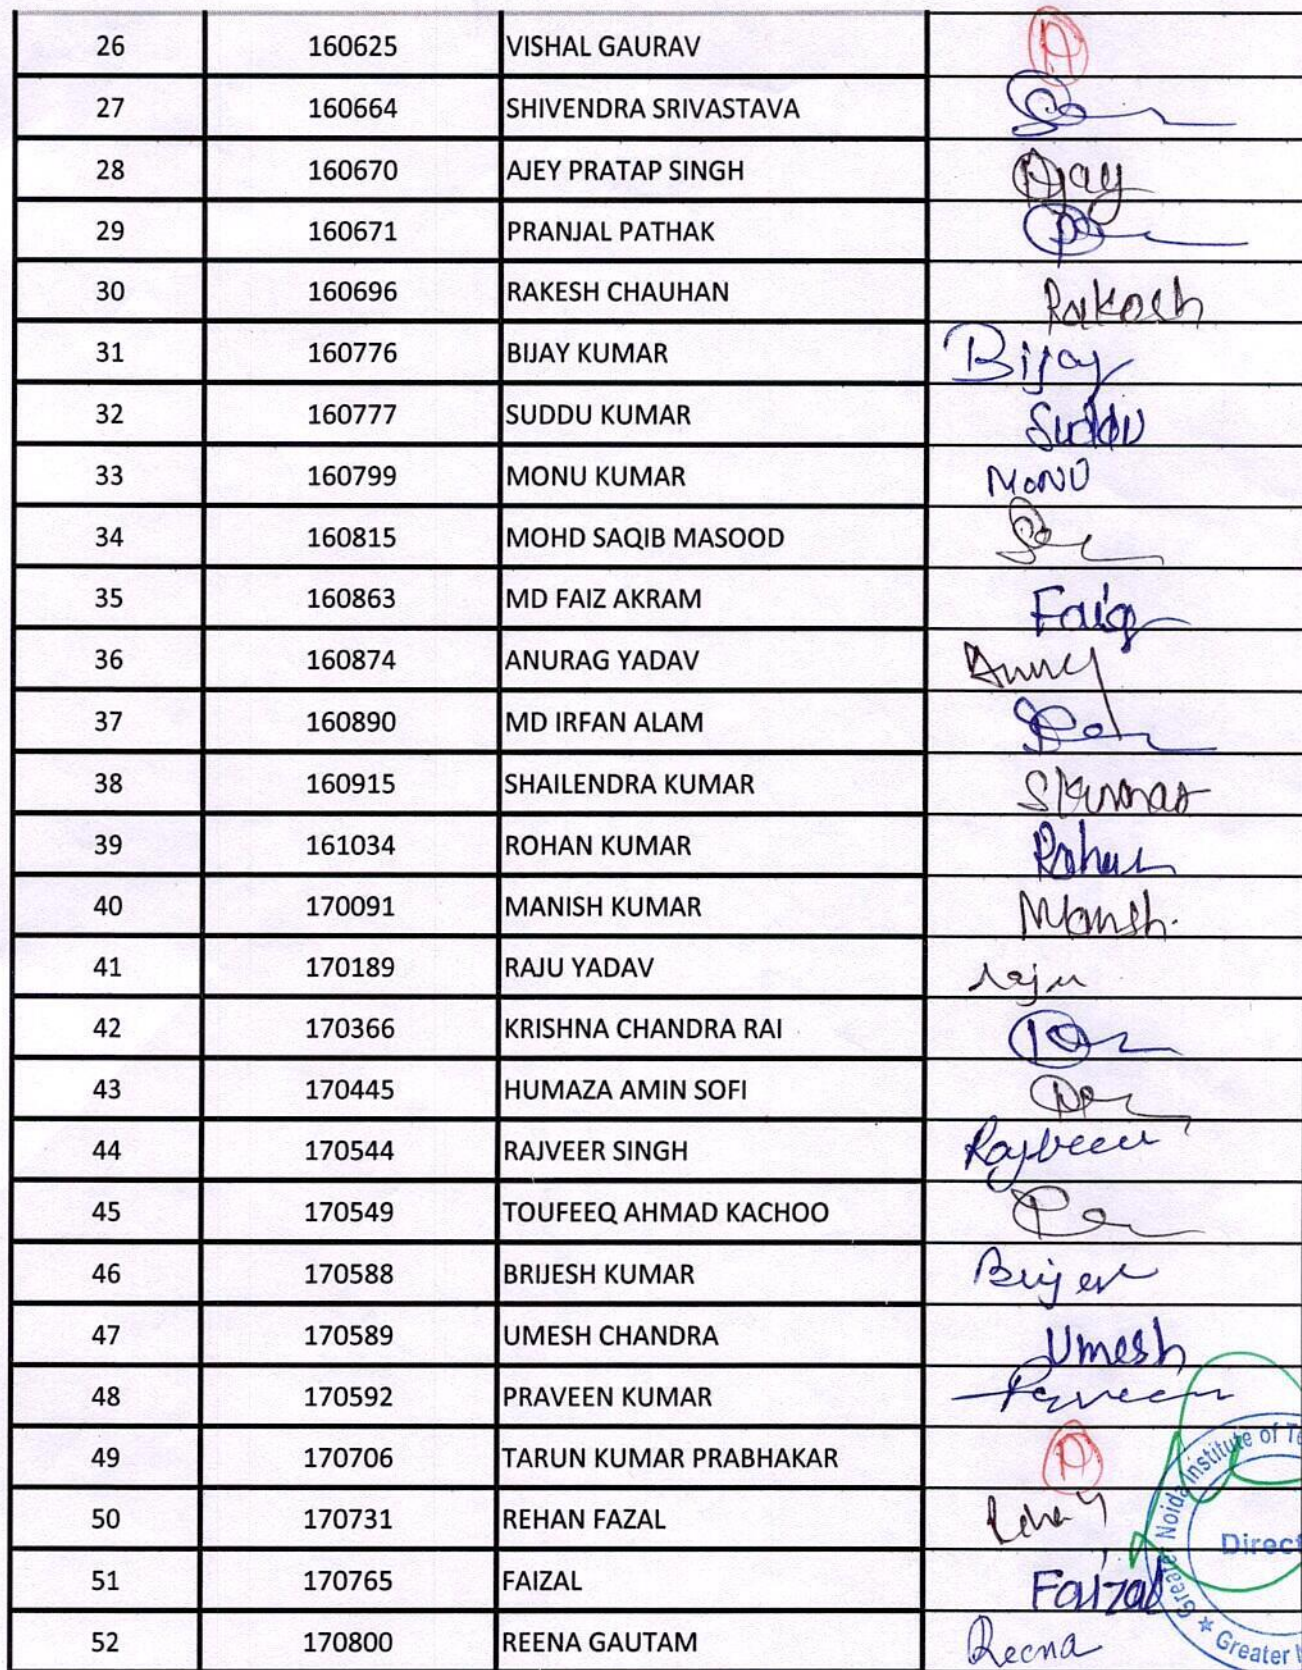 26 160625 VISHAL GAURAV A
27 160664 SHIVENDRA SRIVASTAVA
28 160670 AJEY PRATAP SINGH Ajay
29 160671 PRANJAL PATHAK
30 160696 RAKESH CHAUHAN Rakesh
31 160776 BIJAY KUMAR Bijay
32 160777 SUDDU KUMAR Suddu
33 160799 MONU KUMAR MONU
34 160815 MOHD SAQIB MASOOD
35 160863 MD FAIZ AKRAM Faiz
36 160874 ANURAG YADAV
37 160890 MD IRFAN ALAM
38 160915 SHAILENDRA KUMAR SKumar
39 161034 ROHAN KUMAR Rohan
40 170091 MANISH KUMAR Manish.
41 170189 RAJU YADAV raju
42 170366 KRISHNA CHANDRA RAI
43 170445 HUMAZA AMIN SOFI
44 170544 RAJVEER SINGH Rajveer
45 170549 TOUFEEQ AHMAD KACHOO
46 170588 BRIJESH KUMAR Brijesh
47 170589 UMESH CHANDRA Umesh
48 170592 PRAVEEN KUMAR Parveen
49 170706 TARUN KUMAR PRABHAKAR A
50 170731 REHAN FAZAL
51 170765 FAIZAL Faizal
52 170800 REENA GAUTAM Reena
Greater Noida Institute of Te
Direct
Greater N